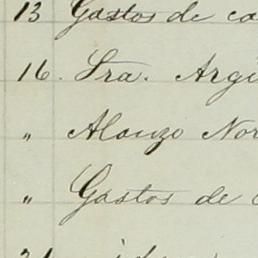 13 Gastos de ca
16. Sra. Arge
" Alonzo Nor
" Gastos de